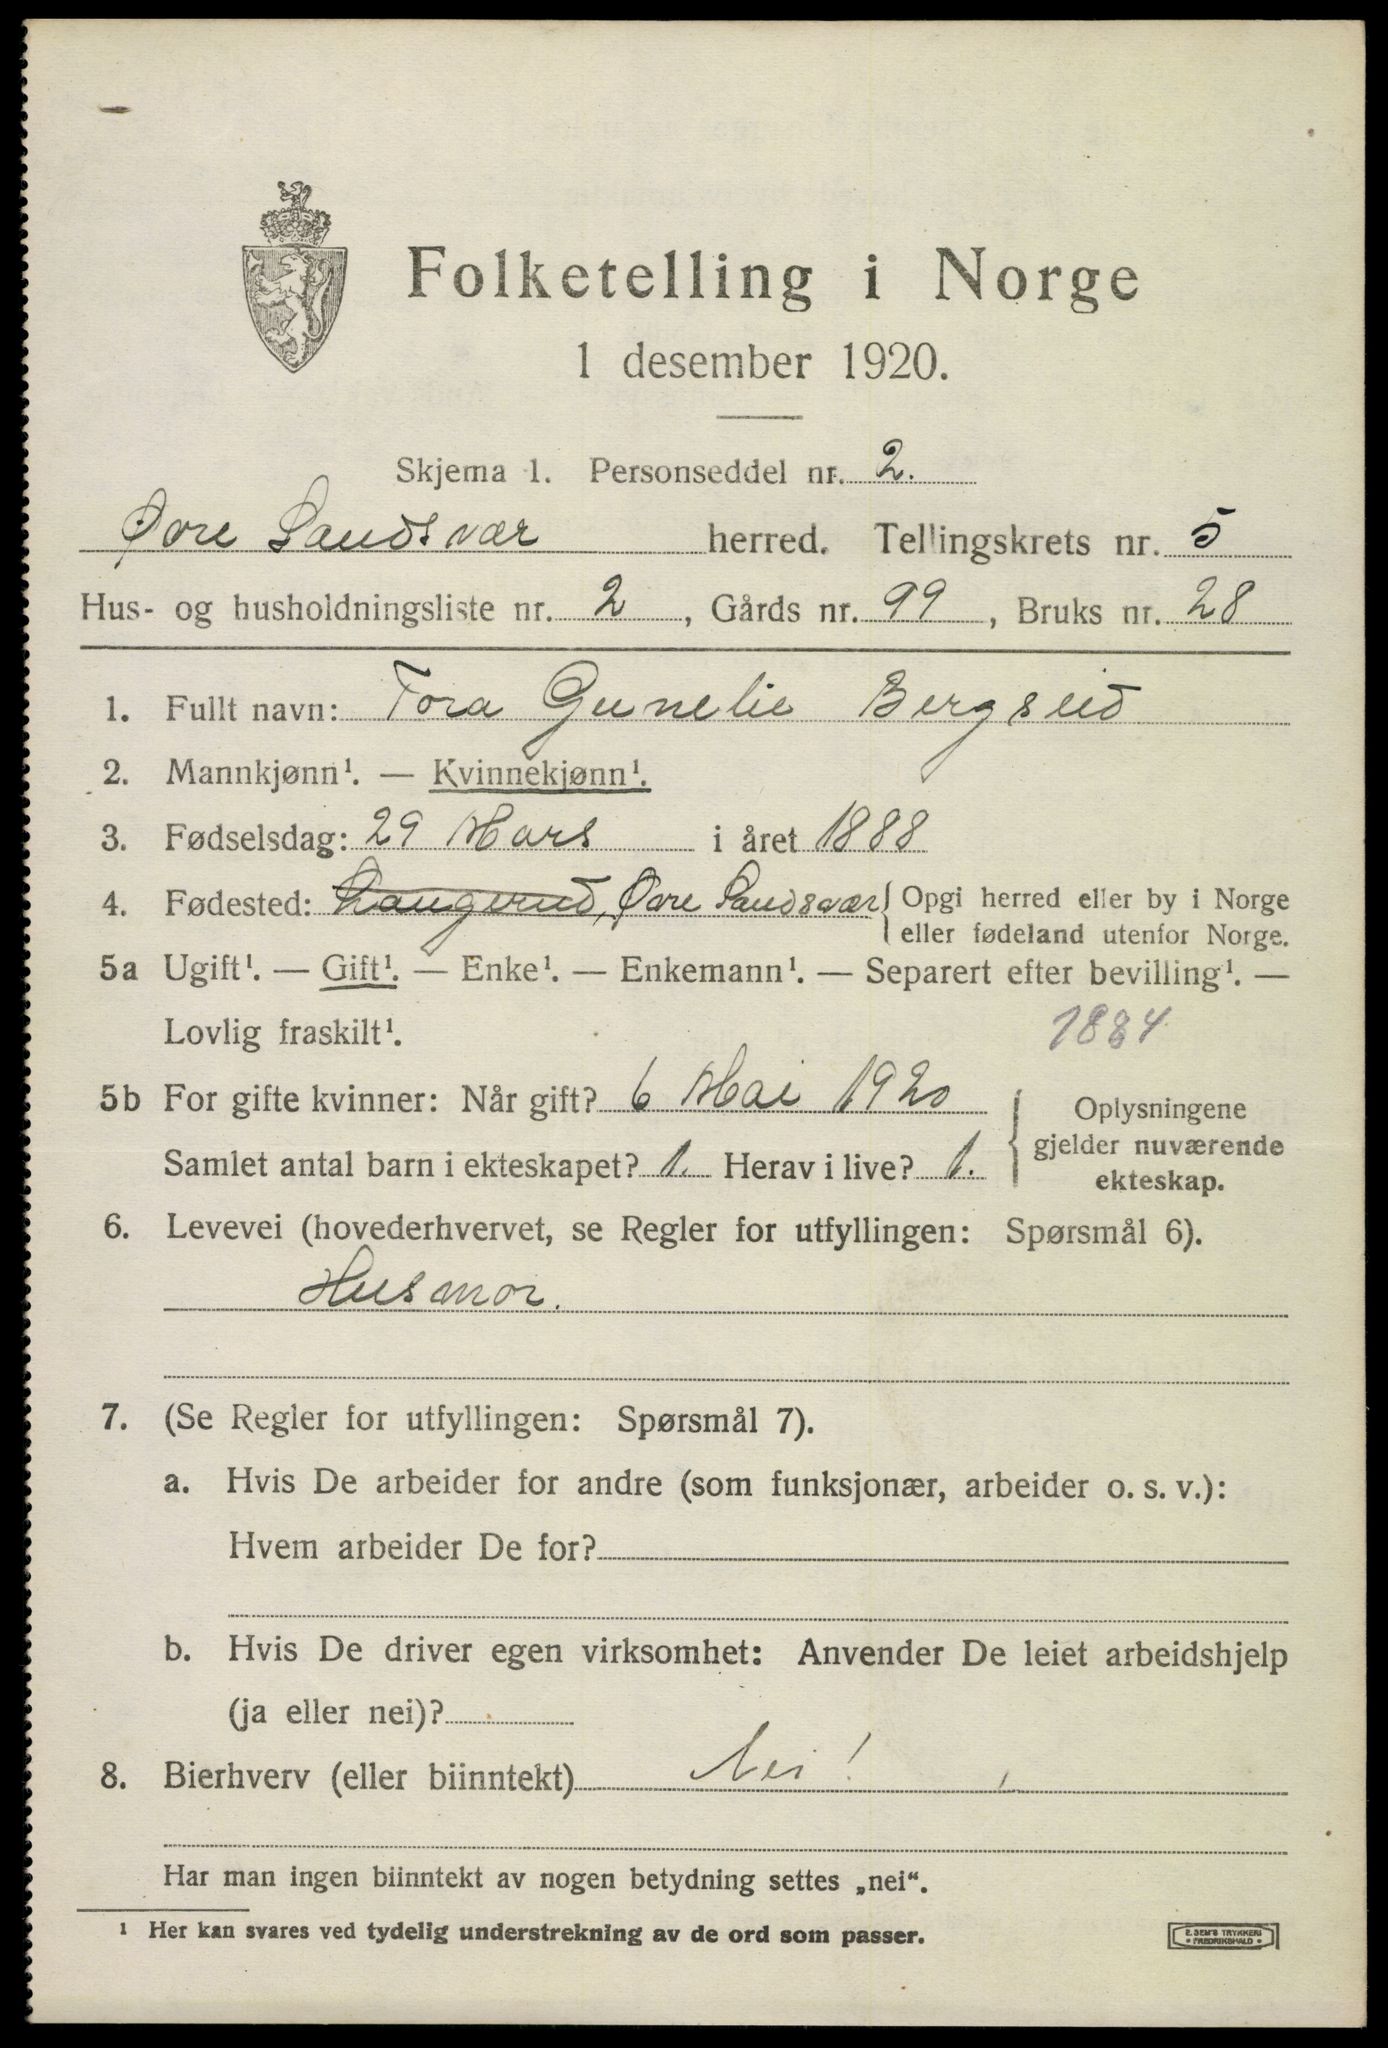 Folketelling i Norge
1 desember 1920.
Skjema 1. Personseddel nr. 2.
Øvre Sandsvær herred. Tellingskrets nr. 5
Hus- og husholdningsliste nr. 2, Gårds nr. 99, Bruks nr. 28
1. Fullt navn: Tora Gunelie Bergseid
2. Mannkjønn¹. — Kvinnekjønn¹.
3. Fødselsdag: 29 Mars i året 1888
4. Fødested: Langerud, Øvre Sandsvær { Opgi herred eller by i Norge
eller fødeland utenfor Norge.
5a Ugift¹. — Gift¹. — Enke¹. — Enkemann¹. — Separert efter bevilling¹. —
Lovlig fraskilt¹. 1884
5b For gifte kvinner: Når gift? 6 Mai 1920
Samlet antal barn i ekteskapet? 1. Herav i live? 1.
Oplysningene
gjelder nuværende
ekteskap.
6. Levevei (hovederhvervet, se Regler for utfyllingen: Spørsmål 6).
Husmor.
7. (Se Regler for utfyllingen: Spørsmål 7).
a. Hvis De arbeider for andre (som funksjonær, arbeider o. s. v.):
Hvem arbeider De for?
b. Hvis De driver egen virksomhet: Anvender De leiet arbeidshjelp
(ja eller nei)?
8. Bierhverv (eller biinntekt) Nei!
Har man ingen biinntekt av nogen betydning settes „nei“.
¹ Her kan svares ved tydelig understrekning av de ord som passer.
E. SEM'S TRYKKERI
• FREDRIKSHALD •